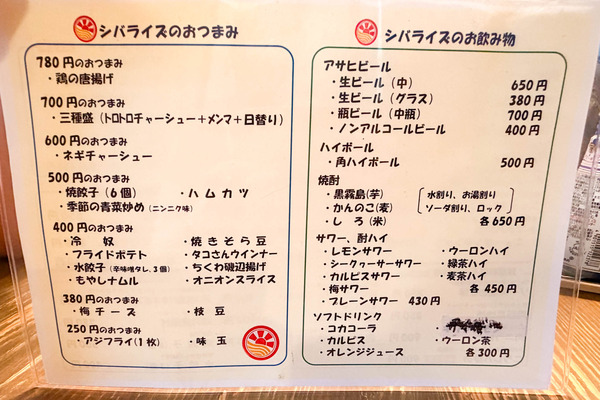 シバライズのおつまみ
780円のおつまみ
・鶏の唐揚げ
700円のおつまみ
・三種盛（トロトロチャーシュー＋メンマ＋日替り）
600円のおつまみ
・ネギチャーシュー
500円のおつまみ
・焼餃子（6個） ・ハムカツ
・季節の青菜炒め（ニンニク味）
400円のおつまみ
・冷 奴 ・焼きそら豆
・フライドポテト ・タコさんウインナー
・水餃子（辛味噌タレ、3個） ・ちくわ磯辺揚げ
・もやしナムル ・オニオンスライス
380円のおつまみ
・梅チーズ ・枝豆
250円のおつまみ
・アジフライ（1枚） ・味玉
シバライズのお飲み物
アサヒビール
・生ビール（中） 650円
・生ビール（グラス） 380円
・瓶ビール（中瓶） 700円
・ノンアルコールビール 400円
ハイボール
・角ハイボール 500円
焼酎
・黒霧島（芋） 水割り、お湯割り
・かんのこ（麦） ソーダ割り、ロック
・しろ（米） 各650円
サワー、酎ハイ
・レモンサワー ・ウーロンハイ
・シークヮーサーサワー ・緑茶ハイ
・カルピスサワー ・麦茶ハイ
・梅サワー 各450円
・プレーンサワー 430円
ソフトドリンク
・コカコーラ
・カルピス ・ウーロン茶
・オレンジジュース 各300円